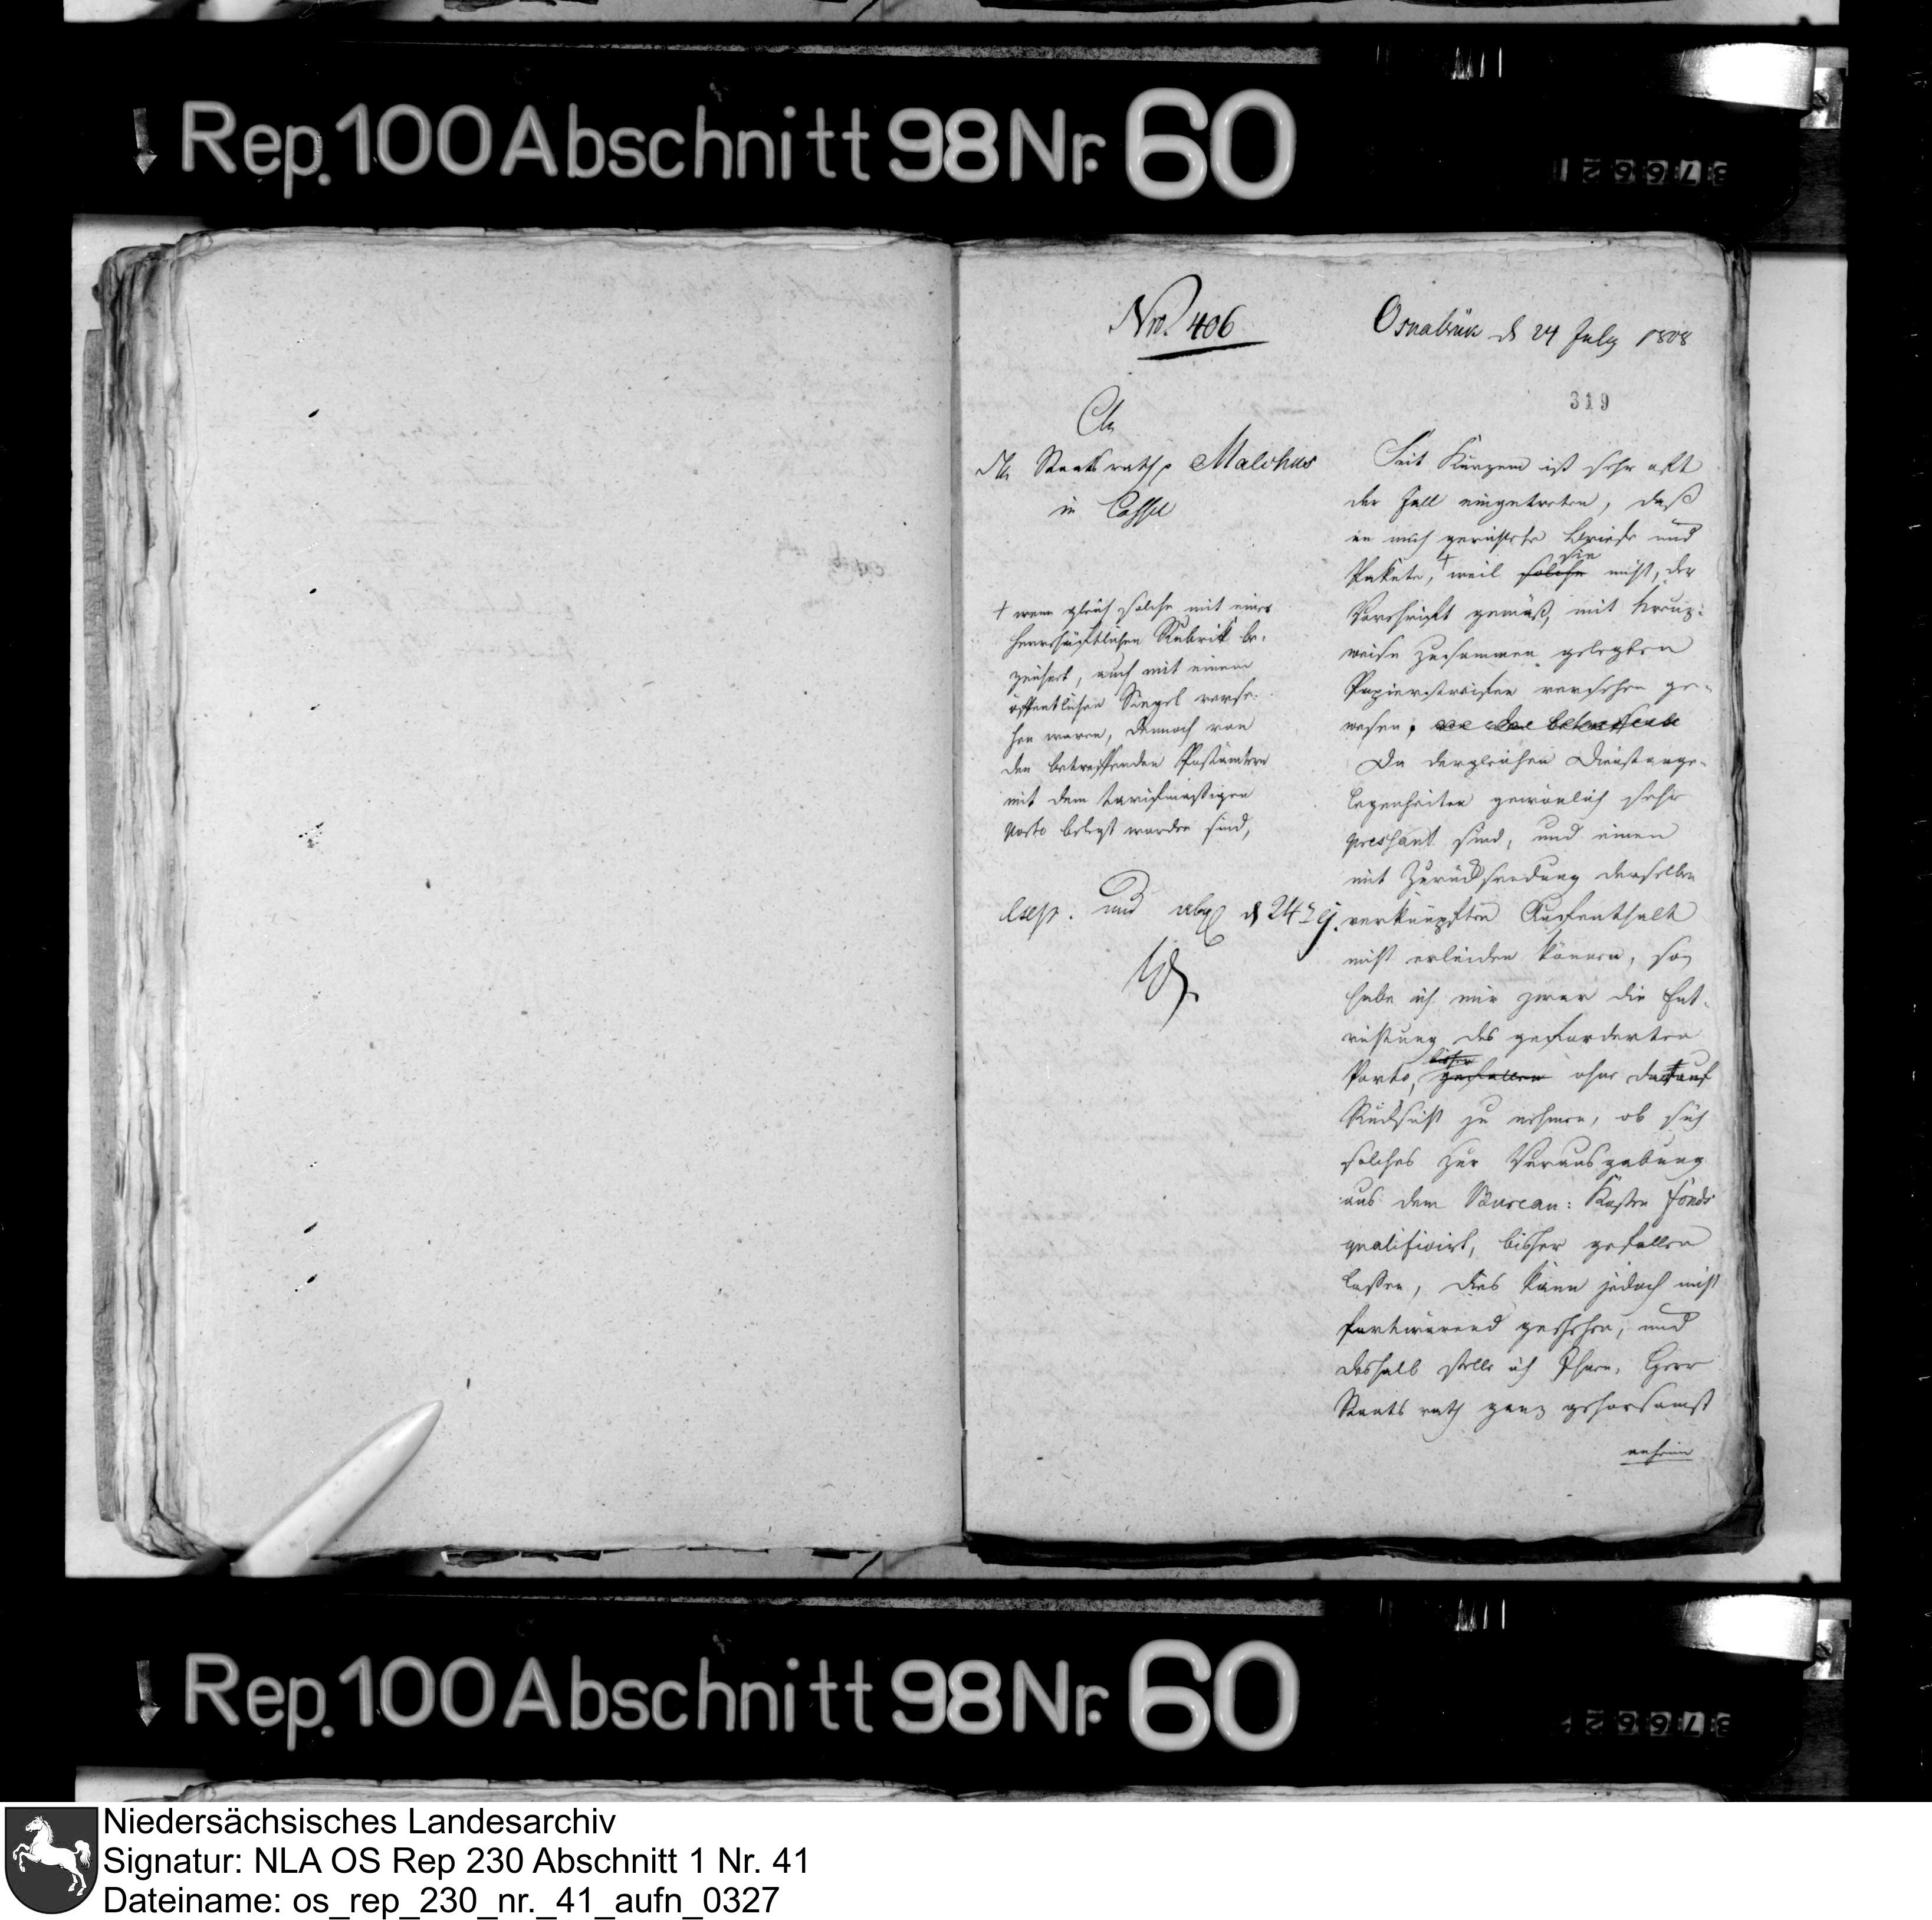 Rep. 100 Abschnitt 98 Nr. 60
37662
Nro. 406
Osnabrük d 24 July 1808
319
An
den Staatsrath p Malchus
in Cassel
Seit Kurzem ist sehr oft
der Fall eingetreten, daß
an mich gerichtete Briefe und
Pakete, + weil solche sie nicht, der
Vorschrift gemäß, mit kreuz-
weise zusammen gelegten
Papierstreifen versehen ge-
wesen,
Da dergleichen Dienstange-
legenheiten gewönlich sehr
pressant sind, und einen
mit Zurücksendung derselben
verknüpften Aufenthalt
nicht erleiden können, so
habe ich mir zwar die Ent-
richtung des geforderten
Porto, bisher gefallen ohne darauf
Rücksicht zu nehmen, ob sich
solches zur Verausgabung
aus dem Bureau: Kosten fonds
qualificirt, bisher gefallen
lassen, dies kann jedoch nicht
fortwärend geschehen, und
deshalb stelle ich Ihnen, Herr
Staatsrath ganz gehorsamst
anheim
+ wenn gleich solche mit einer
herrschaftlichen Rubrik be-
zeichnet, auch mit einem
öffentlichen Siegel verse-
hen waren, dennoch von
den betreffenden Postämtern
mit dem tarifmässigen
Porto belegt worden sind,
exp. und abg d 24 ej.
Rep. 100 Abschnitt 98 Nr. 60
37662
Niedersächsisches Landesarchiv
Signatur: NLA OS Rep 230 Abschnitt 1 Nr. 41
Dateiname: os_rep_230_nr._41_aufn_0327